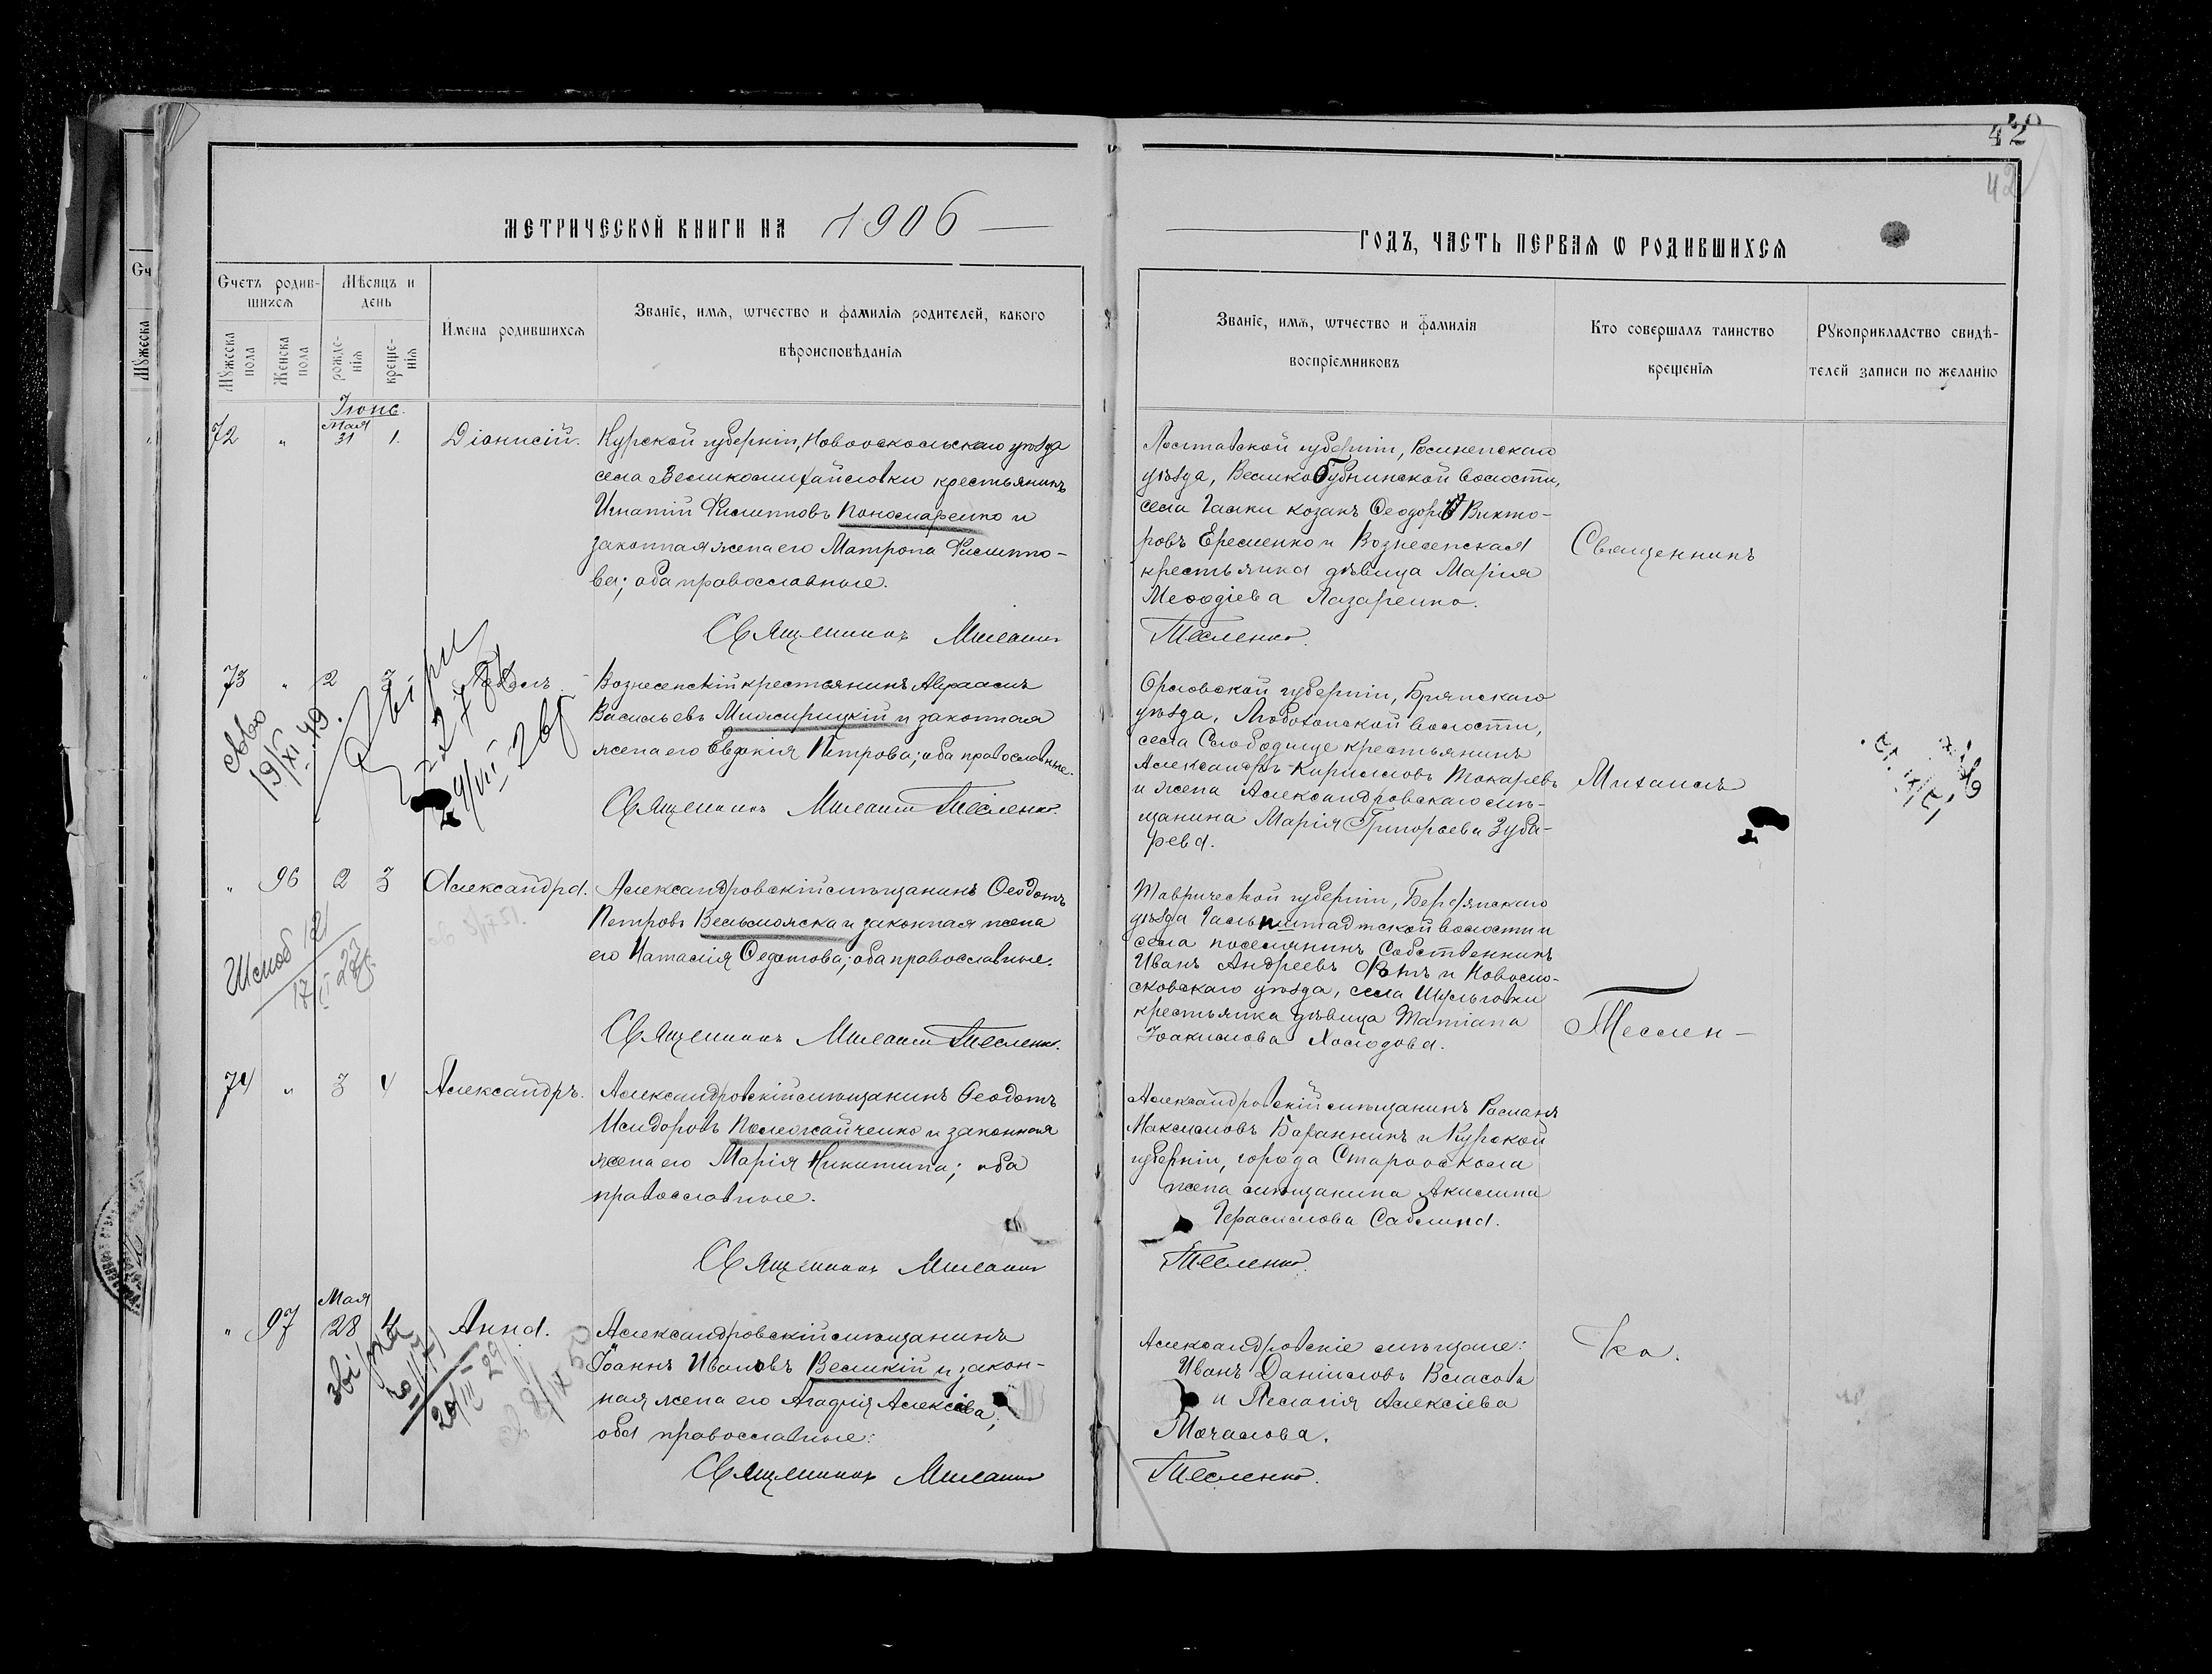 42
42
МЕТРИЧЕСКОЙ КНИГИ НА 1906
ГОДЪ, ЧАСТЬ ПЕРВАЯ Ѡ РОДИВШИХСЯ
Счетъ родив-
шихся
Мѣсяцъ и
день
Мужеска
пола
Женска
пола
рожде-
нія
креще-
нія
Имена родившихся
Званіе, имя, ѡтчество и фамилія родителей, какого
вѣроисповѣданія
Званіе, имя, ѡтчество и фамилія
воспріемниковъ
Кто совершалъ таинство
крещенія
Рукоприкладство свидѣ-
телей записи по желанію
Іюнь.
Мая
72 " 31 1. Діонисій.
Курской губерніи, Новооскольскаго уѣзда
села Великомихайловки крестьянинъ
Игнатій Филипповъ Пономаренко и
законная жена его Матрона Филиппо-
ва; оба православные.
Священникъ Михаилъ
Полтавской губерніи, Роменскаго
уѣзда, Великобубнинской волости,
села Галки козакъ Феодоръ Викто-
ровъ Ересменко и Вознесенская
крестьянка дѣвица Марія
Меѳодіева Лазаренко.
Тесленко.
Священникъ
73 " 2 3 Павелъ
Вознесенскій крестьянинъ Авраамъ
Васильевъ Мижирицкій и законная
жена его Евдокія Петрова; оба православные.
Священникъ Михаилъ Тесленко.
Орловской губерніи, Брянскаго
уѣзда, Любохонской волости,
села Слободище крестьянинъ
Александръ Кирилловъ Токаревъ
и жена Александровскаго мѣ-
щанина Марія Григорьева Зуба-
рева.
Михаилъ
" 96 2 3 Александра.
Александровскій мѣщанинъ Ѳеодотъ
Петровъ Весьмолска и законная жена
его Наталія Федотова; оба православные.
Священникъ Михаилъ Тесленко.
Таврической губерніи, Бердянскаго
уѣзда Гальбштадтской волости и
села поселянинъ Собственникъ
Иванъ Андреевъ Фотъ и Новомо-
сковскаго уѣзда, села Шульговки
крестьянка дѣвица Татіана
Іоакимова Холодова.
Теслен-
74 " 3 4 Александръ.
Александровскій мѣщанинъ Ѳеодотъ
Исидоровъ Положайченко и законная
жена его Марія Никитина; оба
православные.
Священникъ Михаилъ
Александровскій мѣщанинъ Романъ
Максимовъ Баранникъ и Курской
губерніи, города Староскола
жена мѣщанина Акилина
Герасимова Саблина.
Тесленко.
Мая
" 97 28 4 Анна.
Александровскій мѣщанинъ
Іоаннъ Ивановъ Великій и закон-
ная жена его Агафія Алексіева;
оба православные:
Священникъ Михаилъ
Александровскіе мѣщане:
Иванъ Даніиловъ Власовъ
и Пелагія Алексіева
Мочалова.
Тесленко.
ко.